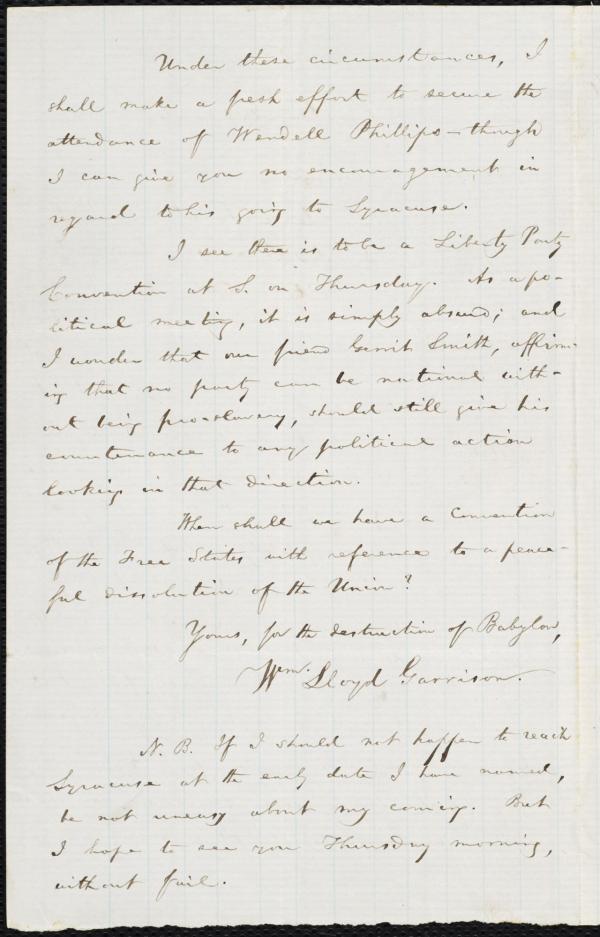 Under these circumstances, I
shall make a fresh effort to secure the
attendance of Wendell Phillips—though
I can give you no encouragement in
regard to his going to Syracuse.
I see there is to be a Liberty Party
Convention at S. on Thursday. As a po-
litical meeting, it is simply absurd; and
I wonder that our friend Gerrit Smith, affirm-
ing that no party can be national with-
out being pro-slavery, should still give his
countenance to any political action
looking in that direction.
When shall we have a Convention
of the Free States with reference to a peace-
ful dissolution of the Union?
Yours, for the destruction of Babylon,
Wm. Lloyd Garrison.
N. B. If I should not happen to reach
Syracuse at the early date I have named,
be not uneasy about my coming. But
I hope to see you Thursday morning,
without fail.